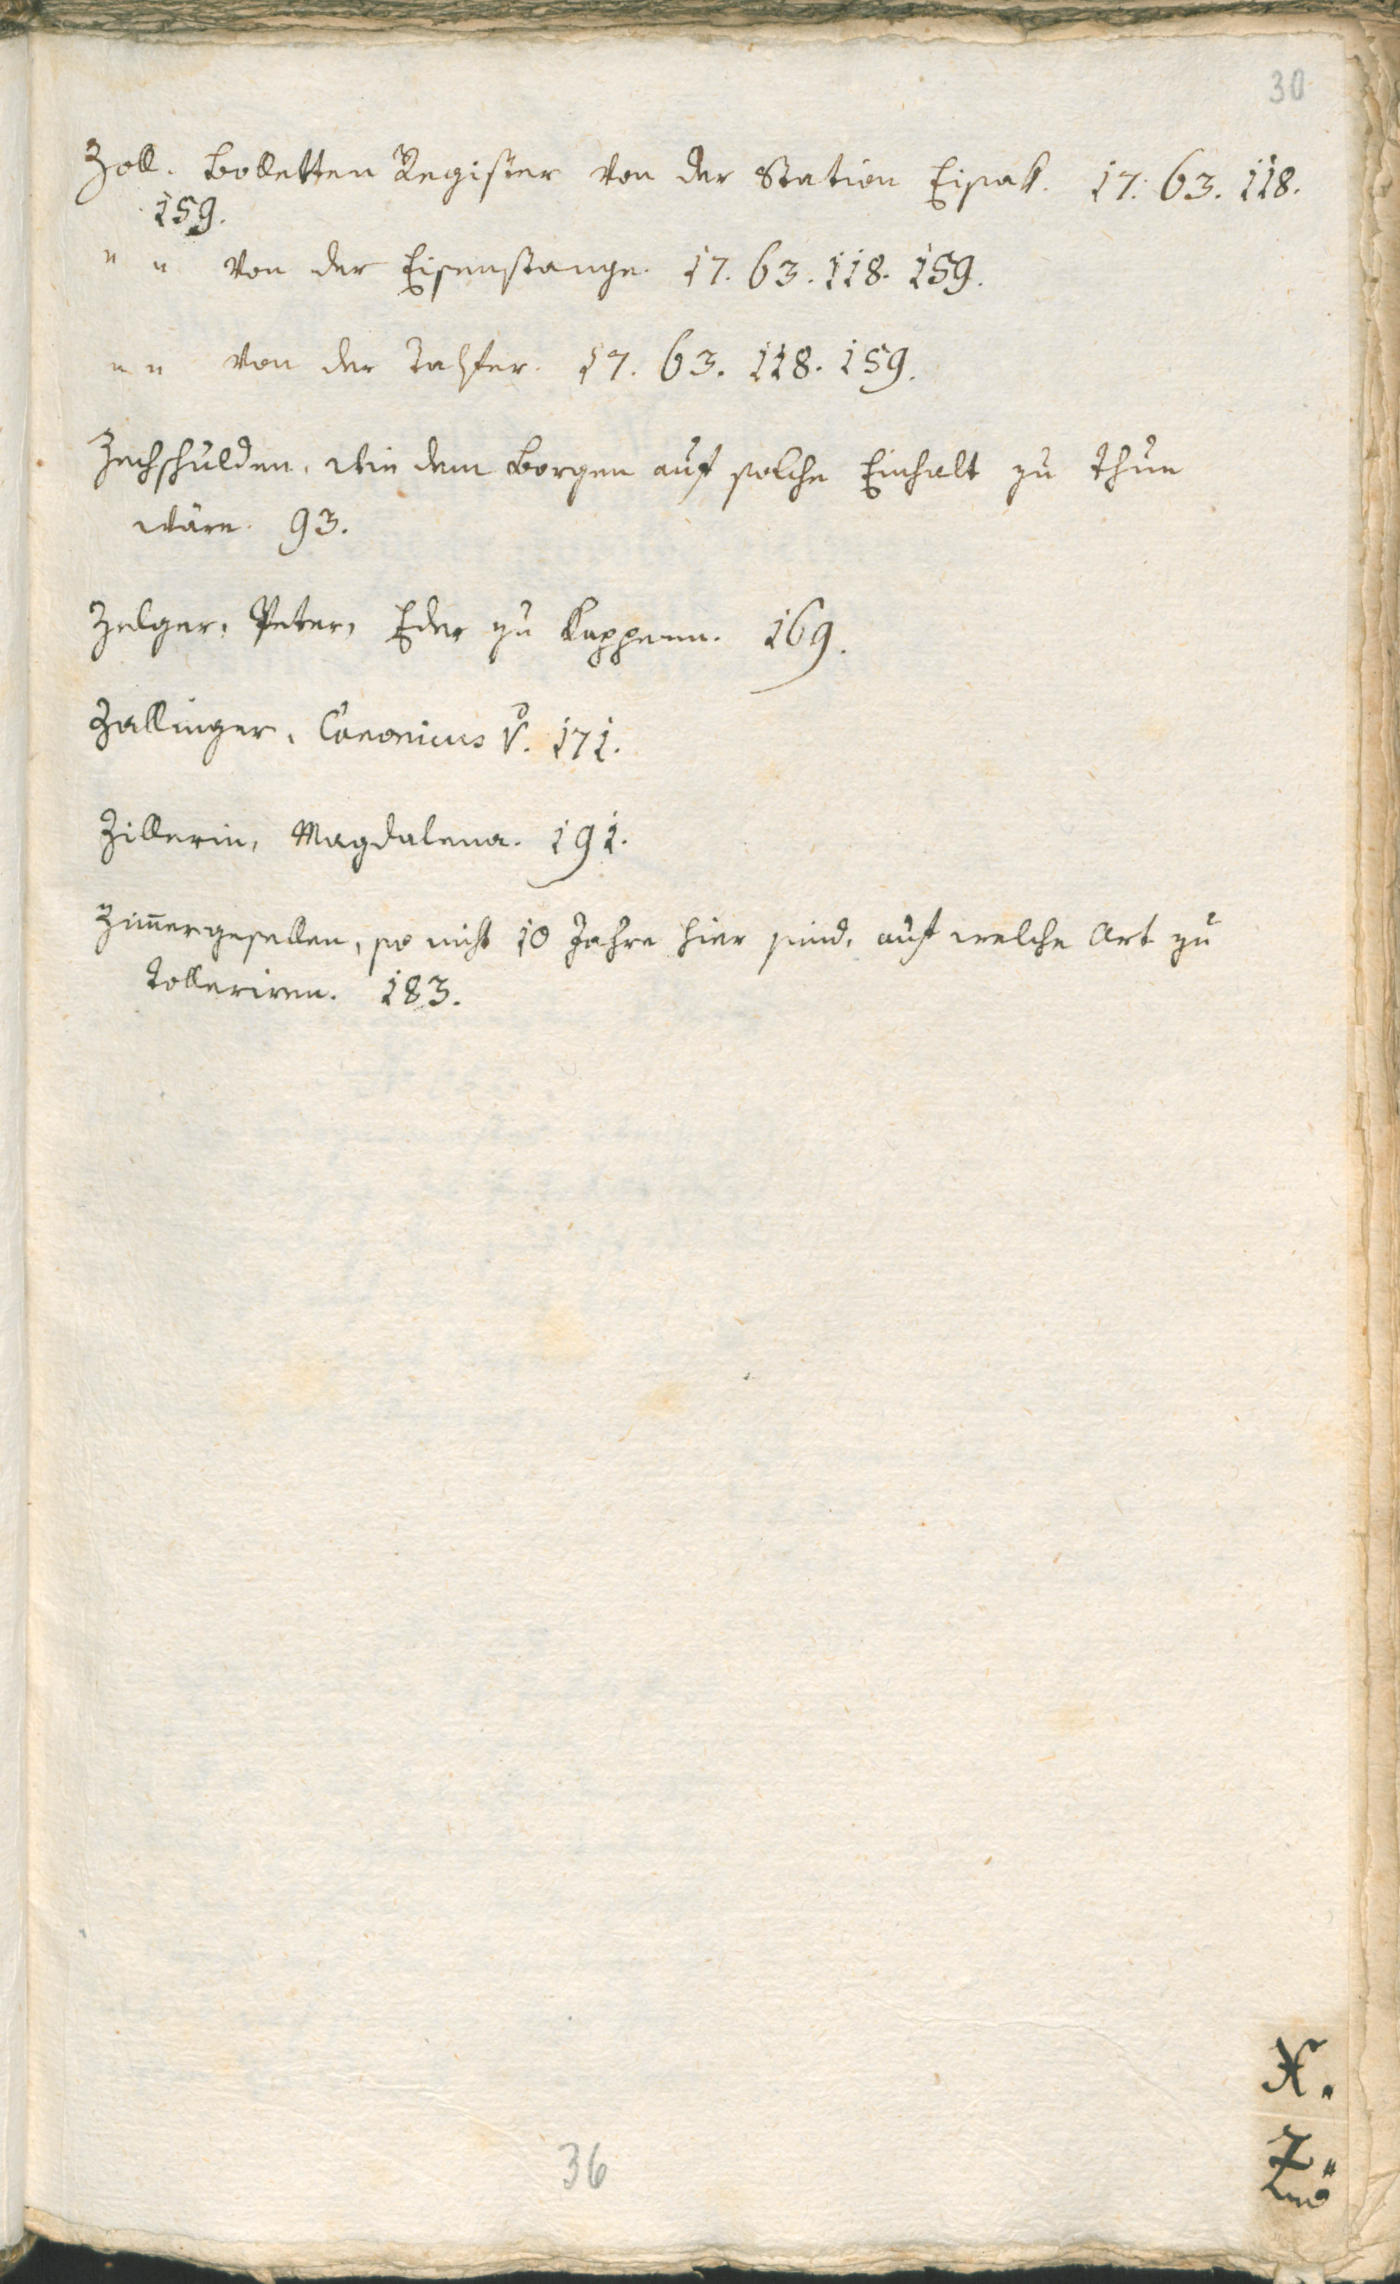 30
Zoll. Bolletten Register von der Station Eisak. 17. 63. 118.
159.
" " von der Eisenstange. 17. 63. 118. 159.
" " von der Talfer. 17. 63. 118. 159.
Zechschulden, wie dem Borgen auf solche Einhalt zu thun
wäre. 93.
Zelger, Peter, Eder zu Kappenn. 169.
Zallinger, Canonicus V. 171.
Zillerin, Magdalena. 191.
Zim̄ergesellen, so nicht 10 Jahre hier sind, auf welche Art zu
tolleriren. 183.
X.
Z.
36